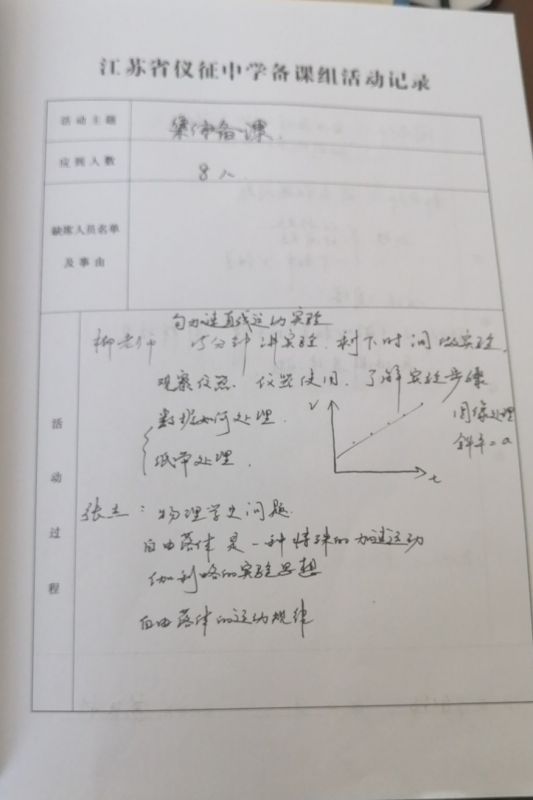 江苏省仪征中学备课组活动记录
活动主题 集体备课
应到人数 8人
缺席人员名单
及事由
匀加速直线运动实验
柳老师 15分钟讲实验.剩下时间做实验.
观察仪器.仪器使用.了解实验步骤
数据如何处理.
纸带处理.
v
t
图像处理
斜率=a
活动过程
张老:物理学史问题.
自由落体是一种特殊的加速运动
伽利略的实验思想
自由落体的运动规律